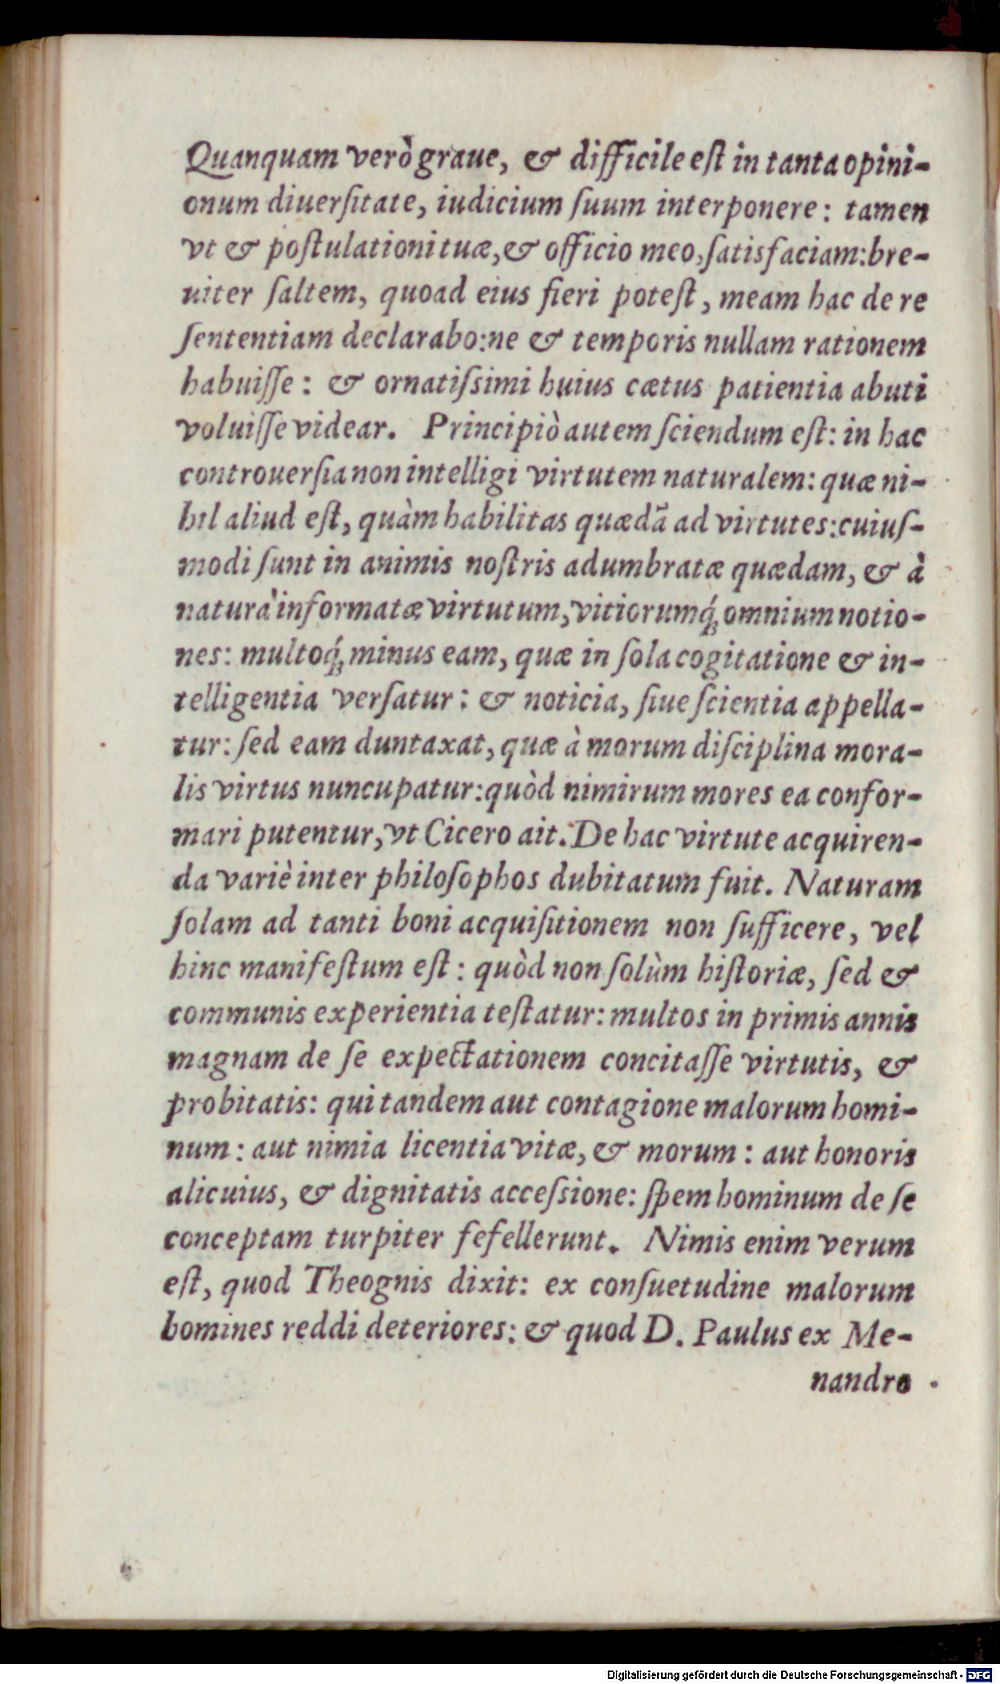 Quanquam verò graue, & difficile eſt in tanta opini-
onum diuerſitate, iudicium ſuum interponere: tamen
vt & poſtulationi tuæ, & officio meo, ſatisfaciam: bre-
uiter ſaltem, quoad eius fieri poteſt, meam hac de re
ſententiam declarabo: ne & temporis nullam rationem
habuiſſe: & ornatiſsimi huius cætus patientia abuti
voluiſſe videar. Principiò autem ſciendum eſt: in hac
controuerſia non intelligi virtutem naturalem: quæ ni-
hil aliud eſt, quàm habilitas quædã ad virtutes: cuiuſ-
modi ſunt in animis noſtris adumbratæ quædam, & à
natura informatæ virtutum, vitiorumq́; omnium notio-
nes: multoq́; minus eam, quæ in ſola cogitatione & in-
telligentia verſatur: & noticia, ſiue ſcientia appella-
tur: ſed eam duntaxat, quæ à morum diſciplina mora-
lis virtus nuncupatur: quòd nimirum mores ea confor-
mari putentur, vt Cicero ait. De hac virtute acquiren-
da variè inter philoſophos dubitatum fuit. Naturam
ſolam ad tanti boni acquiſitionem non ſufficere, vel
hinc manifeſtum eſt: quòd non ſolùm hiſtoriæ, ſed &
communis experientia teſtatur: multos in primis annis
magnam de ſe expectationem concitaſſe virtutis, &
probitatis: qui tandem aut contagione malorum homi-
num: aut nimia licentia vitæ, & morum: aut honoris
alicuius, & dignitatis acceſsione: ſpem hominum de ſe
conceptam turpiter fefellerunt. Nimis enim verum
eſt, quod Theognis dixit: ex conſuetudine malorum
homines reddi deteriores: & quod D. Paulus ex Me-
nandro
Digitalisierung gefördert durch die Deutsche Forschungsgemeinschaft - DFG